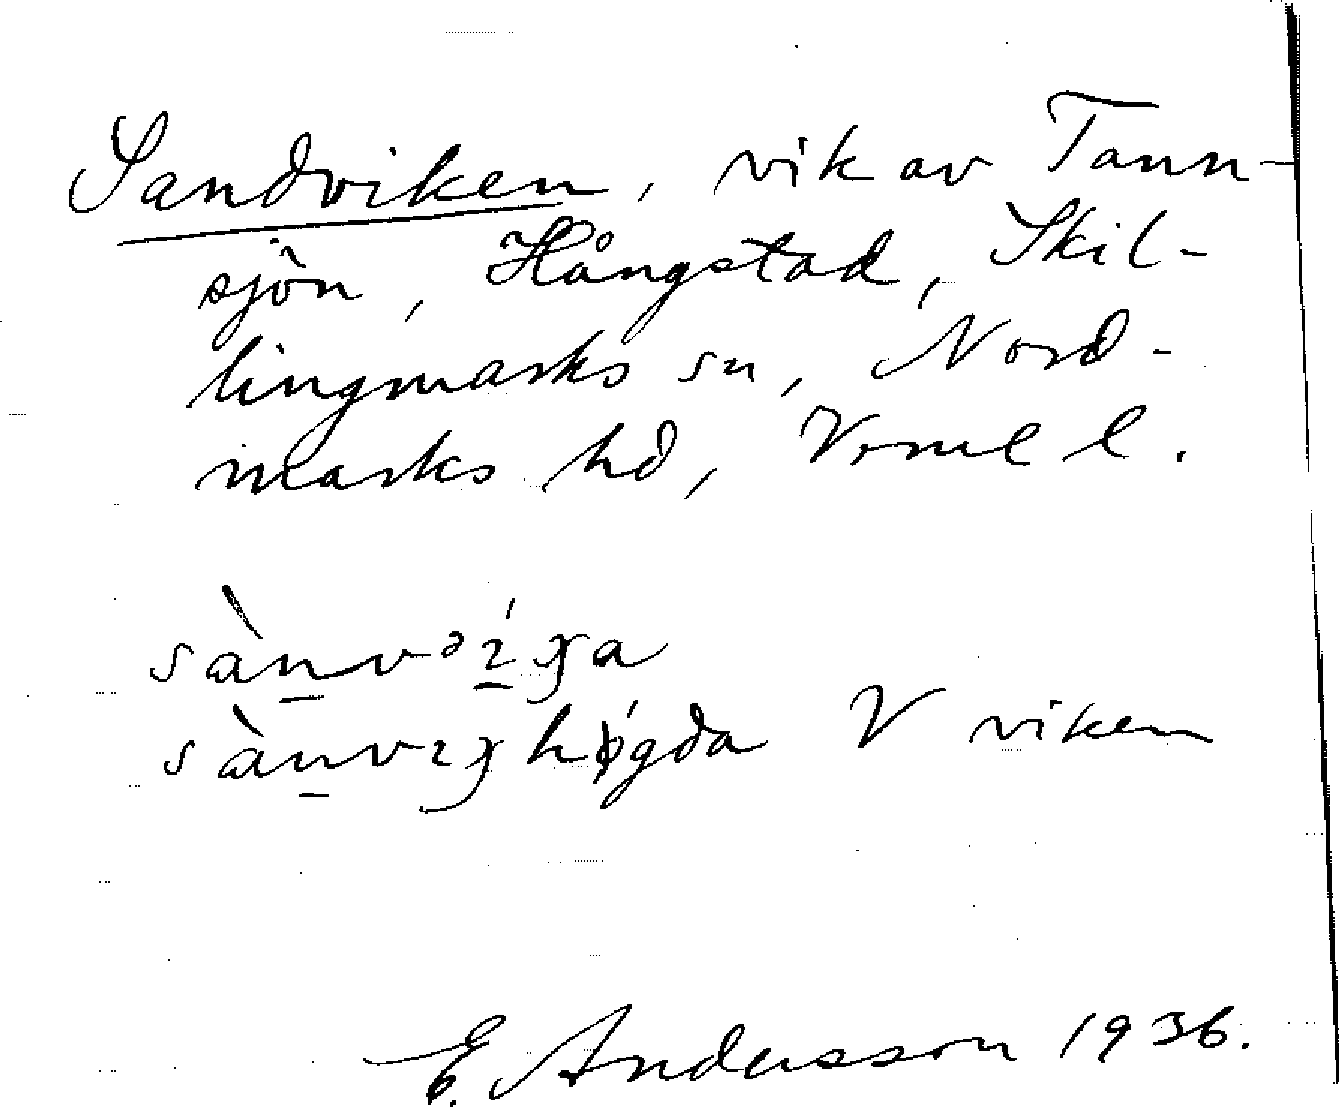 Sandviken, vik av Tann-
sjön, Hångstad, Skil-
lingmarks sn, Nord-
marks hd, Vrml l.
sàn̲vəɪ̲́ʝa
sàn̲vɪʝhǿgda V viken
E. Andersson 1936.